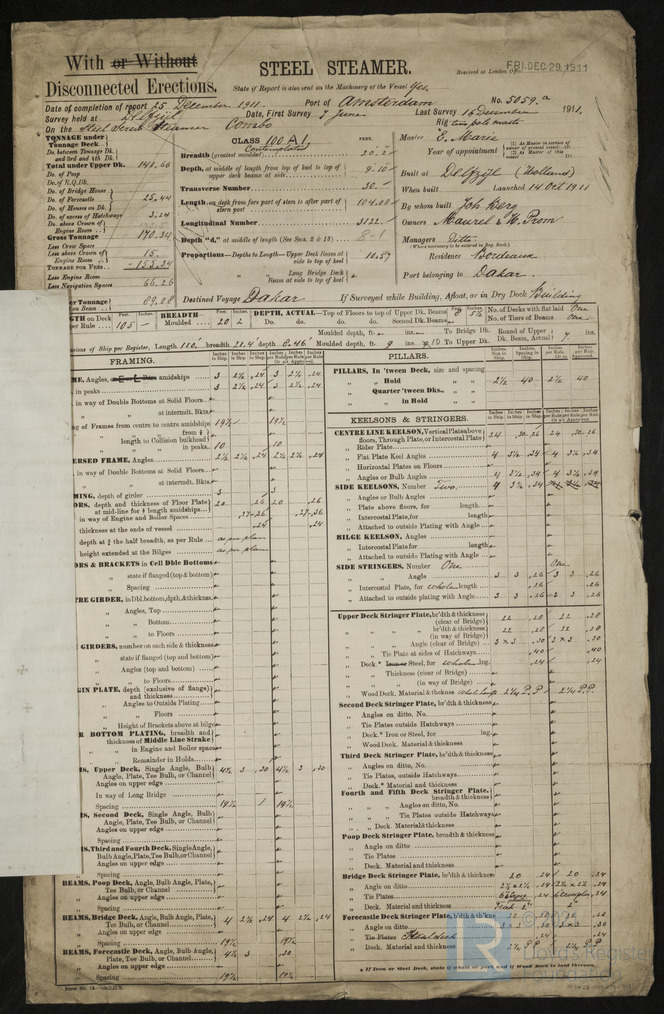 With or Without
Disconnected Erections.
STEEL STEAMER.
Received at London Office FRI. DEC 29 1911
State if Report is also sent on the Machinery of the Vessel Yes.
Date of completion of report 25 December 1911. Port of Amsterdam No. 5059.a
Survey held at Delfzijl Date, First Survey 9 June Last Survey 16 December 1911.
On the Steel Screw Steamer Combo Rig two pole masts
TONNAGE under Tonnage Deck
Do. between Tonnage Dk. and 3rd and 4th Dk.
Total under Upper Dk. 148.66
Do. of Poop
Do. of R.Q.Dk.
Do. of Bridge House
Do. of Forecastle 25.44
Do. of Houses on Dk.
Do. of excess of Hatchways 3.24
Do. above Crown of Engine Room
Gross Tonnage
Less Crew Space
Less above Crown of Engine Room
TONNAGE FOR FEES
Less Engine Room 66.26
Less Navigation Spaces
CLASS 100 A1
Contemplated
FEET.
Breadth (greatest moulded) 20.2
Depth, at middle of length from top of keel to top of upper deck beams at side 9.10
Transverse Number 30.
Length on deck from fore part of stem to after part of stern post 104.00
Longitudinal Number 3122.
Depth "d," at middle of length (See Secs. 2 & 13) 8-1
Proportions—Depths to Length—Upper Deck Beam at side to top of keel 10.59
" " Long Bridge Deck Beam at side to top of keel
Master E. Marie
Year of appointment
Built at Delfzijl (Holland)
When built Launched 14 Oct 1911
By whom built Joh Berg
Owners Maurel & H. Prom
Managers Ditto
(Where necessary to be entered in Reg. Book.)
Residence Bordeaux
Port belonging to Dakar.
Destined Voyage Dakar If Surveyed while Building, Afloat, or in Dry Dock Building
LENGTH on Deck per Rule 105 BREADTH— Moulded 20 2 DEPTH, ACTUAL—Top of Floors to top of Upper Dk. Beams No. of Decks with flat laid One
Do. do. do. do. Second Dk. Beams No. of Tiers of Beams One
Moulded depth, ft. To Bridge Dk. Round of Upper Dk. Beam, Actual 7 ins.
of Ship per Register, Length 110 breadth 20.4 depth 8.46 Moulded depth ft. 9 To Upper Dk.
FRAMING.
Angles, amidships 3 2½ .24 3 2½ .24
in peaks 3 2½ .24 3 2½ .24
in way of Double Bottoms at Solid Floors
" " at intermdt. Bkts.
of Frames from centre to centre amidships 19½ 19½
length to Collision bulkhead
in peaks 10 10
FRAME, Angles 2½ 2½ .24 2½ 2½ .24
in way of Double Bottoms at Solid Floors
" " at intermdt. Bkts.
depth of girder 3 3
depth and thickness of Floor Plate at mid-line for ½ length amidships 20 .26 20 .26
in way of Engine and Boiler Spaces .27-.36 .27-.36
thickness at the ends of vessel .24 .24
depth at ¾ the half breadth, as per Rule as per plan
height extended at the Bilges as per plan
& BRACKETS in Cell Dble Bottoms
state if flanged (top & bottom)
Spacing
GIRDER, in Dbl. bottom, dpth, & thickness
" Angles, Top
" " Bottom
" " to Floors
GIRDERS, number on each side & thickness
" state if flanged (top and bottom)
" Angles (top and bottom)
" " to Floors
PLATE, depth (exclusive of flange) and thickness
" Angles to Outside Plating
" " Floors
" Height of Brackets above at bilge
BOTTOM PLATING, breadth and thickness of Middle Line Strake
" in Engine and Boiler spaces
" Remainder in Holds
Upper Deck, Single Angle, Bulb Angle, Plate, Tee Bulb, or Channel 4½ 3 .30 4½ 3 .30
Angles on upper edge
In way of Long Bridge
Spacing 19½ 19½
Second Deck, Single Angle, Bulb Angle, Plate, Tee Bulb, or Channel
Angles on upper edge
Spacing
Third and Fourth Deck, Single Angle, Bulb Angle, Plate, Tee Bulb, or Channel
Angles on upper edge
Spacing
BEAMS, Poop Deck, Angle, Bulb Angle, Plate, Tee Bulb, or Channel
Angles on upper edge
Spacing
BEAMS, Bridge Deck, Angle, Bulb Angle, Plate, Tee Bulb, or Channel 4 2½ .24 4 2½ .24
Angles on upper edge
Spacing 19½ 19½
BEAMS, Forecastle Deck, Angle, Bulb Angle, Plate, Tee Bulb, or Channel 4½ 3 .30
Angles on upper edge
Spacing 19½ 19½
PILLARS.
PILLARS, In 'tween Deck, size and spacing
" Hold " " 2½ 40 2½ 40
" Quarter 'tween Dks., " "
" in Hold " "
KEELSONS & STRINGERS.
CENTRE LINE KEELSON, Vertical Plate above floors, Through Plate, or Intercostal Plate 24 .30-.26 24 .30-.26
" Rider Plate
" Flat Plate Keel Angles 4 3½ .34 4 3½ .34
" Horizontal Plates on Floors
" Angles or Bulb Angles 4 3½ .34 4 3½ .34
SIDE KEELSONS, Number Two. 4 3½ .34
" Angles or Bulb Angles
" Plate above floors, for length
" Intercostal Plate, for length
" Attached to outside Plating with Angle
BILGE KEELSON, Angles
" Intercostal Plate for length
" Attached to outside Plating with Angle
SIDE STRINGERS, Number One One
" Angle 3 3 .26 3 3 .26
" Intercostal Plate, for whole length .26 .26
" Attached to outside plating with Angle 3 3 .26 3 3 .26
Upper Deck Stringer Plate, br'dth & thickness (clear of Bridge) 22 .28 22 .28
" " " br'dth & thickness (in way of Bridge) 22 .28 22 .28
" " Angle (clear of Bridge) 3 x 3 .30 3 x 3 .30
" Tie Plate at sides of Hatchways .40 .40
" Deck.* Iron or Steel, for whole lng. .24 .24
" Thickness (clear of Bridge)
" " (in way of Bridge)
" Wood Deck. Material & thickness 2¼ P.P 2¼ P.P.
Second Deck Stringer Plate, br'dth & thickness
" Angles on ditto, No.
" Tie Plates outside Hatchways
" Deck.* Iron or Steel, for lng.
" Wood Deck. Material & thickness
Third Deck Stringer Plate, br'dth & thickness
" Angles on ditto, No.
" Tie Plates, outside Hatchways
" Deck.* Material and thickness
Fourth and Fifth Deck Stringer Plate, breadth & thickness
" " Angles on ditto, No.
" " Tie Plates outside Hatchways
" " Deck. Material & thickness
Poop Deck Stringer Plate, breadth & thickness
" Angle on ditto
" Tie Plates
" Deck. Material and thickness
Bridge Deck Stringer Plate, br'dth & thickness 20 .24 20 .24
" Angle on ditto 2½ x 2½ .24 2½ x 2½ .24
" Tie Plates .24 .24
" Deck. Material and thickness Teak 2" 2"
Forecastle Deck Stringer Plate, b'dth & th'kns 22 .28
" Angle on ditto 3 x 3 .30 3 x 3 .30
" Tie Plates Steel deck .24 .24
" Deck. Material and thickness 2¼ P.P 2¼ P.P
* If Iron or Steel Deck, state if whole or part and if Wood Deck is laid thereon.
Lloyd's Register
Foundation